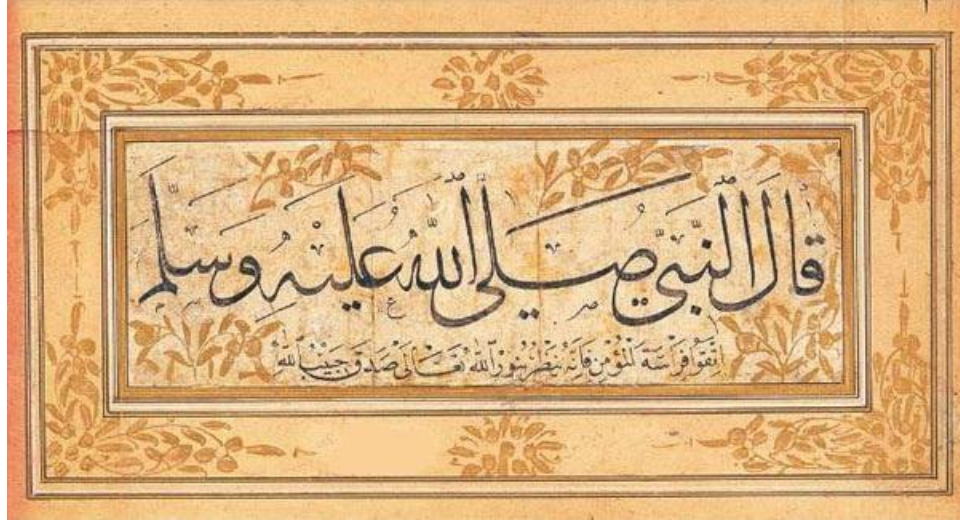 قَالَ النَّبِيُّ صَلَّى اللهُ عَلَيْهِ وَسَلَّمَ
اِتَّقُوا فِرَاسَةَ الْمُؤْمِنِ فَإِنَّهُ يَنْظُرُ بِنُورِ اللهِ تَعَالَى صَدَقَ حَبِيبُ اللهِ